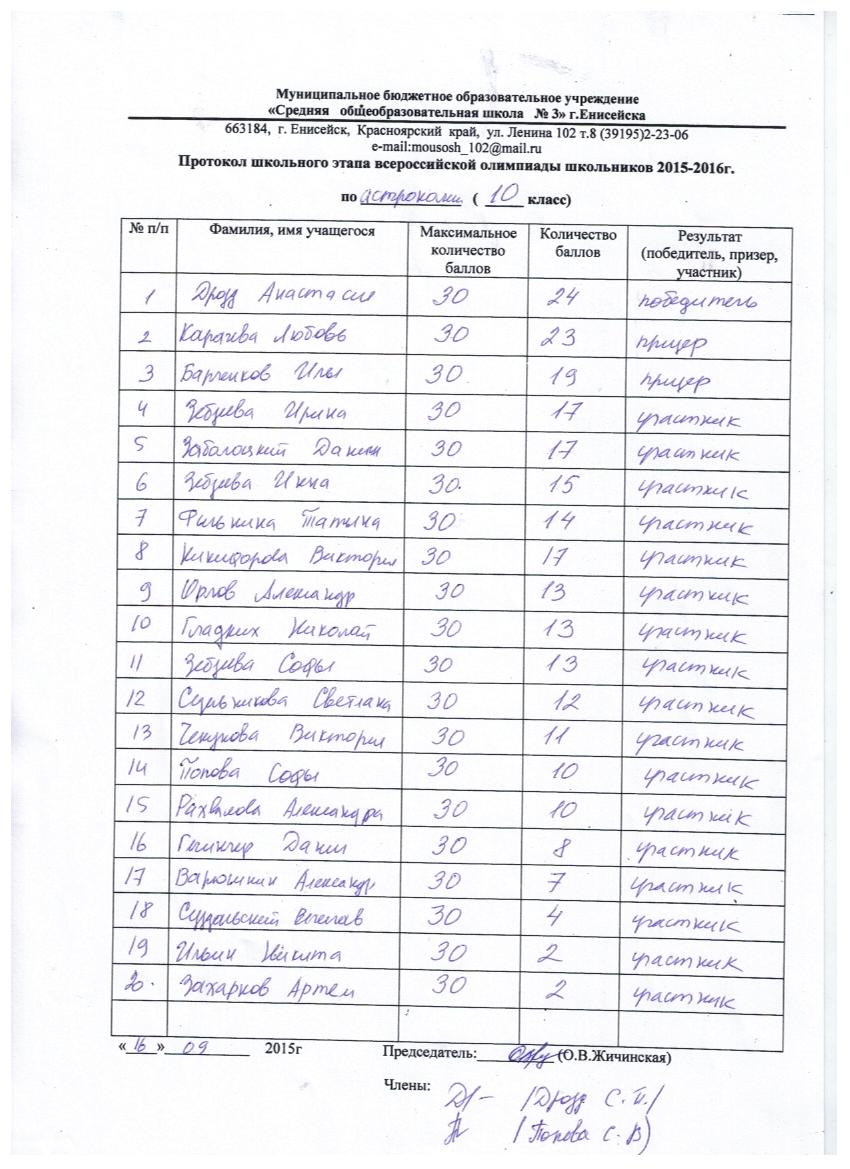 Муниципальное бюджетное образовательное учреждение
«Средняя общеобразовательная школа № 3» г.Енисейска
663184, г. Енисейск, Красноярский край, ул. Ленина 102 т.8 (39195)2-23-06
e-mail:mousosh_102@mail.ru
Протокол школьного этапа всероссийской олимпиады школьников 2015-2016г.
по астрономи ( 10 класс)
№ п/п Фамилия, имя учащегося Максимальное количество баллов Количество баллов Результат (победитель, призер, участник)
1 Дрозд Анастасия 30 24 победитель
2 Карачева Любовь 30 23 призер
3 Илья 30 19 призер
4 Зебзеева Ирина 30 17 участник
5 Заболоцкий Данил 30 17 участник
6 Зебзеева Инна 30. 15 участник
7 Филькина Татьяна 30 14 участник
8 Никифорова Виктория 30 17 участник
9 Орлов Александр 30 13 участник
10 Гладких Николай 30 13 участник
11 Зебзеева Софья 30 13 участник
12 Светлана 30 12 участник
13 Чекунова Виктория 30 11 участник
14 Попова Софья 30 10 участник
15 Рахвалова Александра 30 10 участник
16 Данил 30 8 участник
17 Варюшкин Александр 30 7 участник
18 Суздальский 30 4 участник
19 Ильин Никита 30 2 участник
20. Захарков Артем 30 2 участник
«16» 09 2015г Председатель: (О.В.Жичинская)
Члены:
/Дрозд С.П./
/Попова С.В)